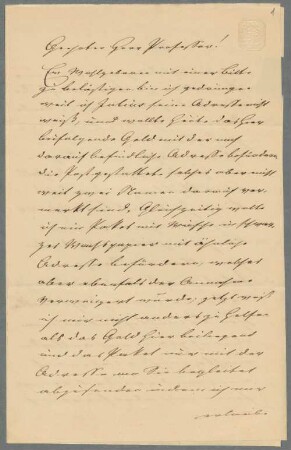 1
Geehrter Herr Professor!
Ew Wohlgeboren mit einer Bitte
zu belästigen bin ich gezwungen
weil ich Julius seine Adresse nicht
weiß, und wollte heute das hier
beifolgende Geld mit der noch
darauf befindliche Adresse befördern
die Post gestattete solches aber nicht
weil zwei Namen darauf ver-
merkt sind. Gleichzeitig wollte
ich ein Paket mit Wäsche in schwar-
zes Wachspapier mit ähnliche
Adresse befördern, welches
aber ebenfalls der Annahme
verweigert wurde, jetzt weiß
ich mir nicht anders zu helfen
als das Geld hier beilegend
und das Paket nur mit der
Adresse an Sie begleitet
abzusenden indem ich mir
erlaube